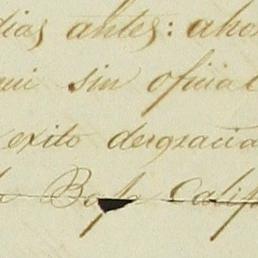 dias antes: aho
qui sin oficial
exito desgracia
Baja Calif